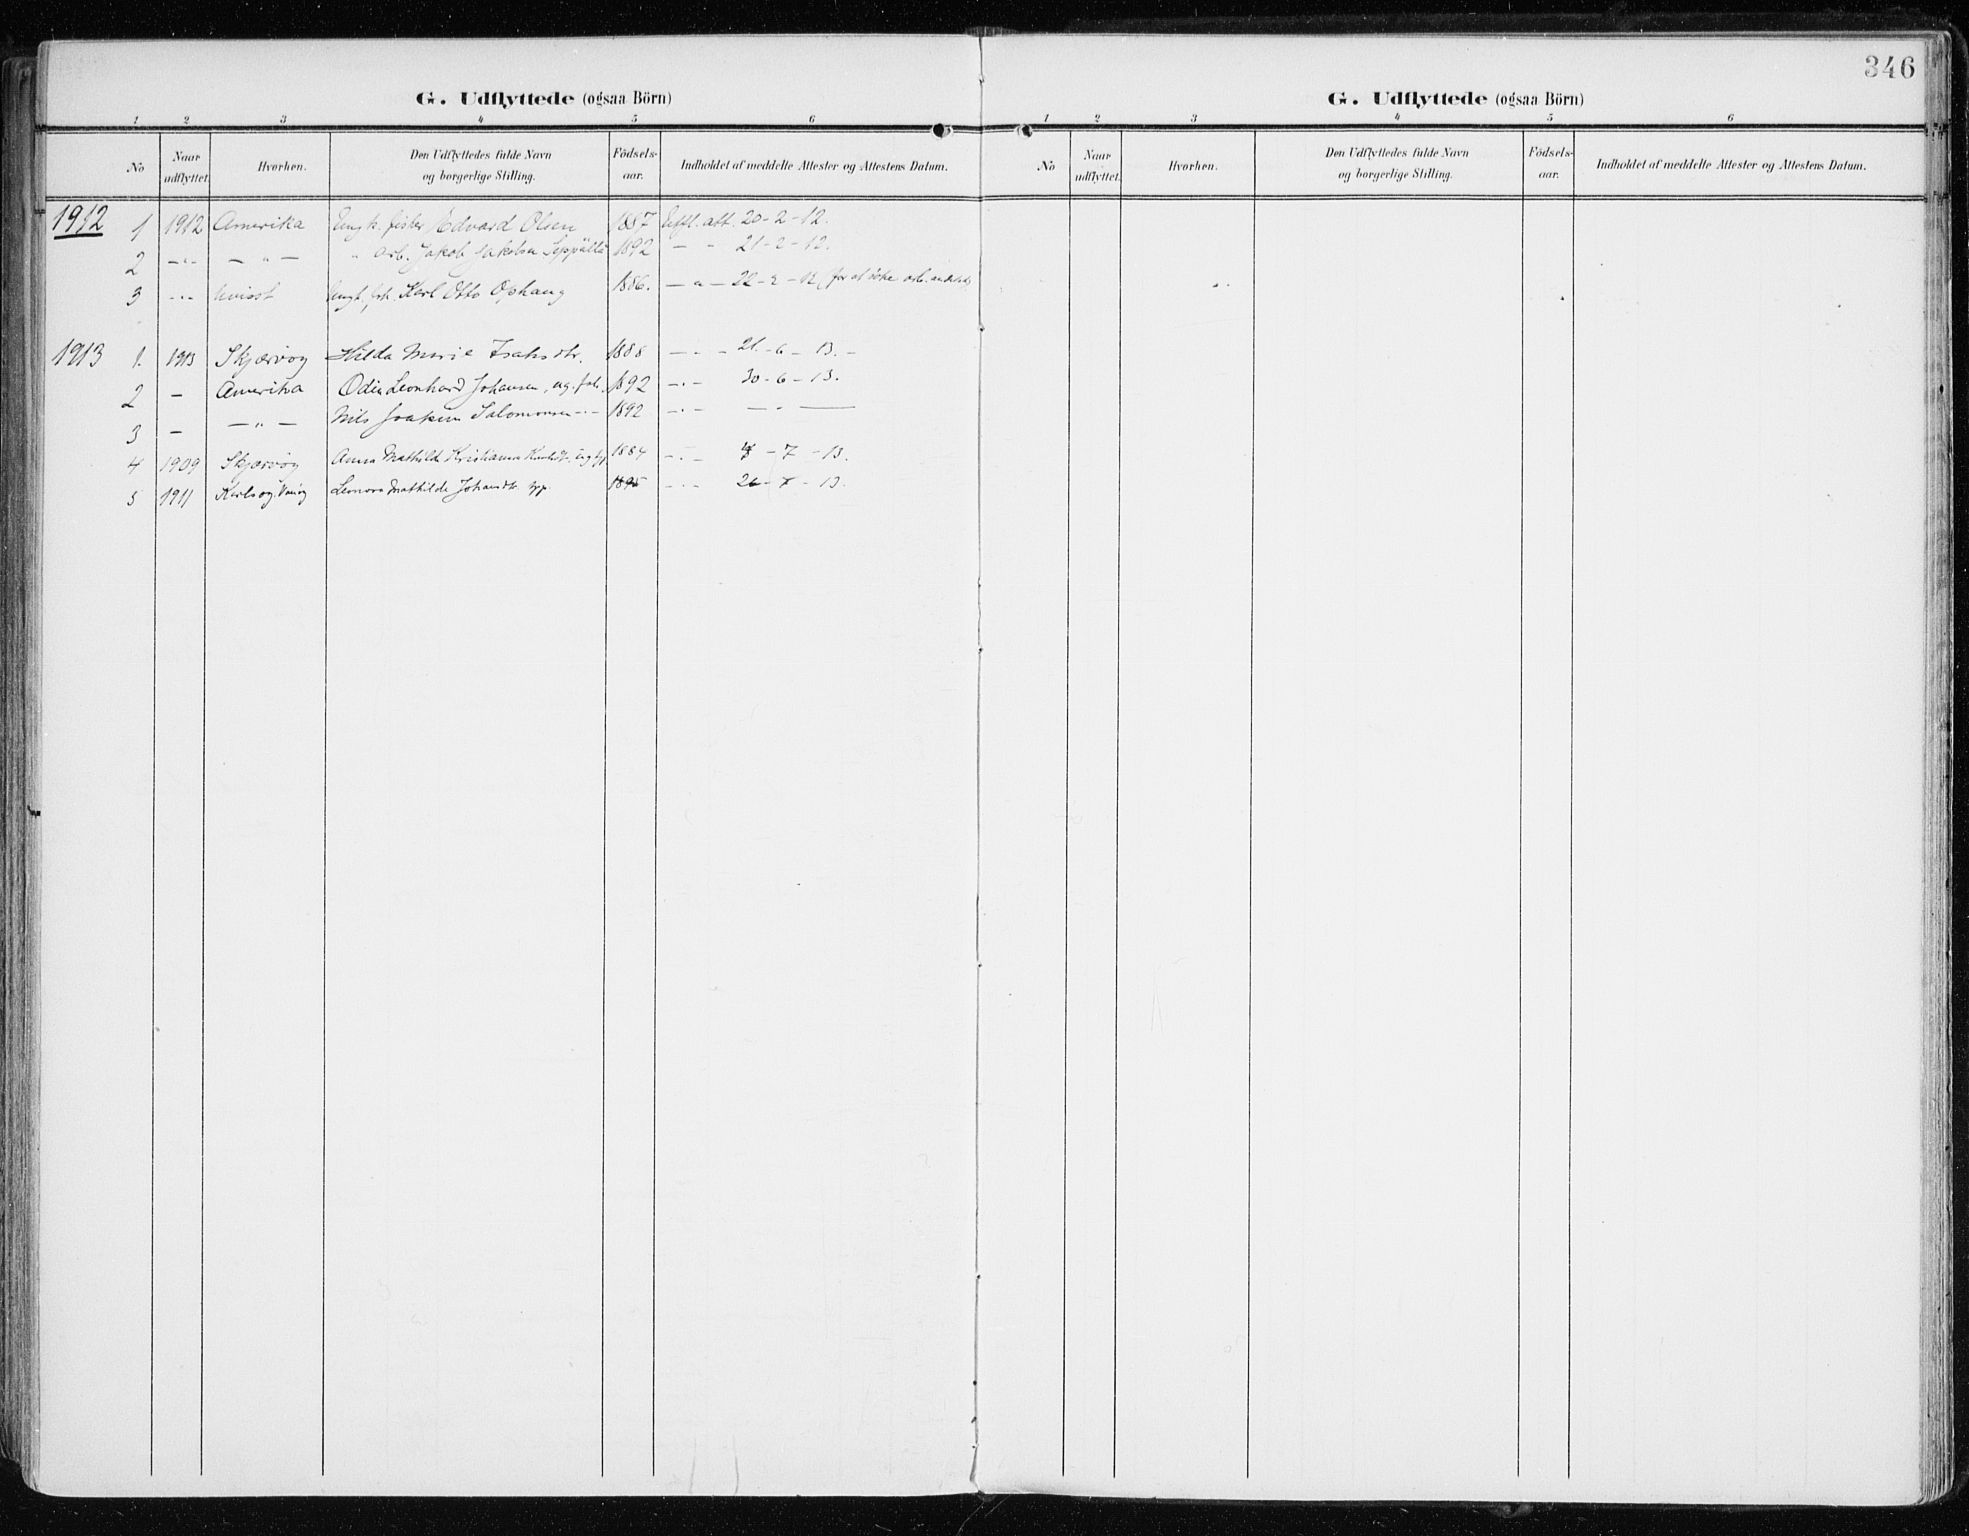 346
G. Udflyttede (ogsaa Börn)
1 2 3 4 5 6
No Naar udflyttet. Hvorhen. Den Udflyttedes fulde Navn og borgerlige Stilling. Födsels-aar. Indholdet af meddelte Attester og Attestens Datum.
1912 1 1912 Amerika Ungk. fisker Edvard Olsen 1887 att. 20-2-12.
2 -"- - " - " arb. Jakob Jakobsen Seppälä 1892 - " 21-2-12.
3 -"- uvisst Ungk. Karl Otto Ophaug 1886. - " - 22-2-12 (for at söke arb.
1913 1. 1913 Skjærvøy Hilda Marie Isaksdtr. 1888 - - - 21-6-13.-
2 - Amerika Odin Leonhard Johansen, ug. 1892 - " - 30-6-13.
3 - - " - Nils Joakim Salomonsen -"- 1892 - " - - " -
4 1909 Skjærvøy Anna Mathilde Kristianna 1884 - " - 4-7-13.
5 1911 Karlsøy Leonora Mathilde Johansdtr. 1895 - " - 26-7-13.
G. Udflyttede (ogsaa Börn)
1 2 3 4 5 6
No Naar udflyttet. Hvorhen. Den Udflyttedes fulde Navn og borgerlige Stilling. Födsels-aar. Indholdet af meddelte Attester og Attestens Datum.